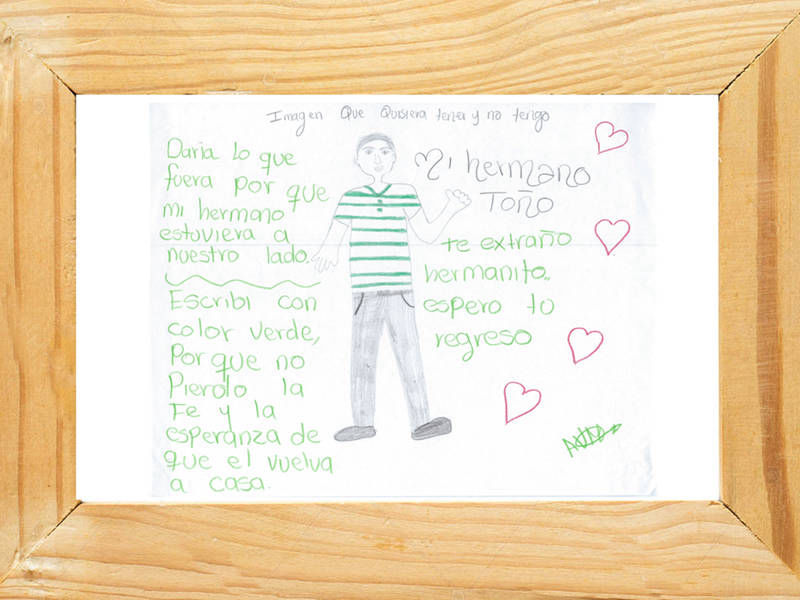 Imagen Que Quisiera tener y no tengo
Daria lo que
fuera por que
mi hermano
estuviera a
nuestro lado.
Escribi con
color verde,
Por que no
Pierdo la
Fe y la
esperanza de
que el vuelva
a casa.
Mi hermano
Toño
te extraño
hermanito,
espero tu
regreso